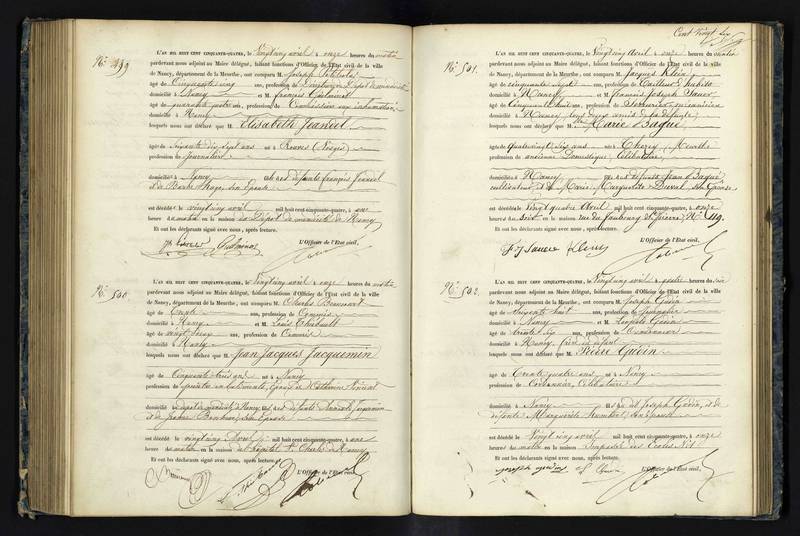 Cent Vingt Six
N.º 499
L'AN MIL HUIT CENT CINQUANTE-QUATRE, le vingt cinq avril à onze heures du matin
pardevant nous adjoint au Maire délégué, faisant fonctions d'Officier de l'État civil de la ville
de Nancy, département de la Meurthe, ont comparu M. Joseph
âgé de Cinquante cinq ans, profession de Dépôt de mendicité
domicilié à Nancy et M. François
âgé de quarante quatre ans, profession de Commissaire aux inhumations
domicilié à Nancy
lesquels nous ont déclaré que M. Elisabeth Jeandel
âgée de Soixante dix sept ans née à (Vosges)
profession de Journalière
domiciliée à Nancy est défunts François Jeandel
et de Barbe son épouse
est décédée le vingt cinq avril mil huit cent cinquante-quatre, à une
heure du matin en la maison du Dépôt de mendicité de Nancy
Et ont les déclarants signé avec nous, après lecture.
L'Officier de l'État civil,
N.º 500
L'AN MIL HUIT CENT CINQUANTE-QUATRE, le Vingt cinq avril à onze heures du matin
pardevant nous adjoint au Maire délégué, faisant fonctions d'Officier de l'État civil de la ville
de Nancy, département de la Meurthe, ont comparu M. Charles
âgé de Trente ans, profession de Commis
domicilié à Nancy et M. Louis
âgé de vingt ans, profession de Commis
domicilié à Nancy
lesquels nous ont déclaré que M. Jean Jacques Jacquemin
âgé de Cinquante trois ans né à Nancy
profession de peintre en batiments, époux de Catherine
domicilié au dépôt de mendicité à Nancy est défunts Jacquemin
et de Jeanne son épouse
est décédé le vingt cinq Avril mil huit cent cinquante-quatre, à une
heure du matin en la maison hôpital St Charles de Nancy
Et ont les déclarants signé avec nous, après lecture.
L'Officier de l'État civil,
N.º 501.
L'AN MIL HUIT CENT CINQUANTE-QUATRE, le Vingt cinq Avril à onze heures du matin
pardevant nous adjoint au Maire délégué, faisant fonctions d'Officier de l'État civil de la ville
de Nancy, département de la Meurthe, ont comparu M. Jacques Klein
âgé de cinquante sept ans, profession de Tailleur d'habits
domicilié à Nancy et M. François Joseph
âgé de Cinquante huit ans, profession de Serrurier mécanicien
domicilié à Nancy, tous deux amis de la défunte
lesquels nous ont déclaré que Mlle Marie Bagué
âgée de Quatre vingt six ans née à (Meurthe)
profession de ancienne Domestique, Célibataire
domiciliée à Nancy défunts Jean Bagué
cultivateur et de Marie Marguerite Duval, son épouse
est décédée le Vingt quatre Avril mil huit cent cinquante-quatre, à onze
heures du soir en la maison rue du faubourg St Pierre, N.º 119.
Et ont les déclarants signé avec nous, après lecture.
L'Officier de l'État civil,
N.º 502.
L'AN MIL HUIT CENT CINQUANTE-QUATRE, le Vingt cinq avril à quatre heures du soir
pardevant nous adjoint au Maire délégué, faisant fonctions d'Officier de l'État civil de la ville
de Nancy, département de la Meurthe, ont comparu M. Joseph Guérin
âgé de Soixante huit ans, profession de Journalier
domicilié à Nancy et M. Léopold Guérin
âgé de trente six ans, profession de Cordonnier
domicilié à Nancy, frère du défunt
lesquels nous ont déclaré que M. Pierre Guérin
âgé de Trente quatre ans, né à Nancy
profession de Cordonnier, Célibataire
domicilié à Nancy Joseph Guérin, et de
défunte Marguerite son épouse
est décédé le Vingt cinq avril mil huit cent cinquante-quatre, à onze
heures du matin en la maison des Écoles
Et ont les déclarants signé avec nous, après lecture.
L'Officier de l'État civil,